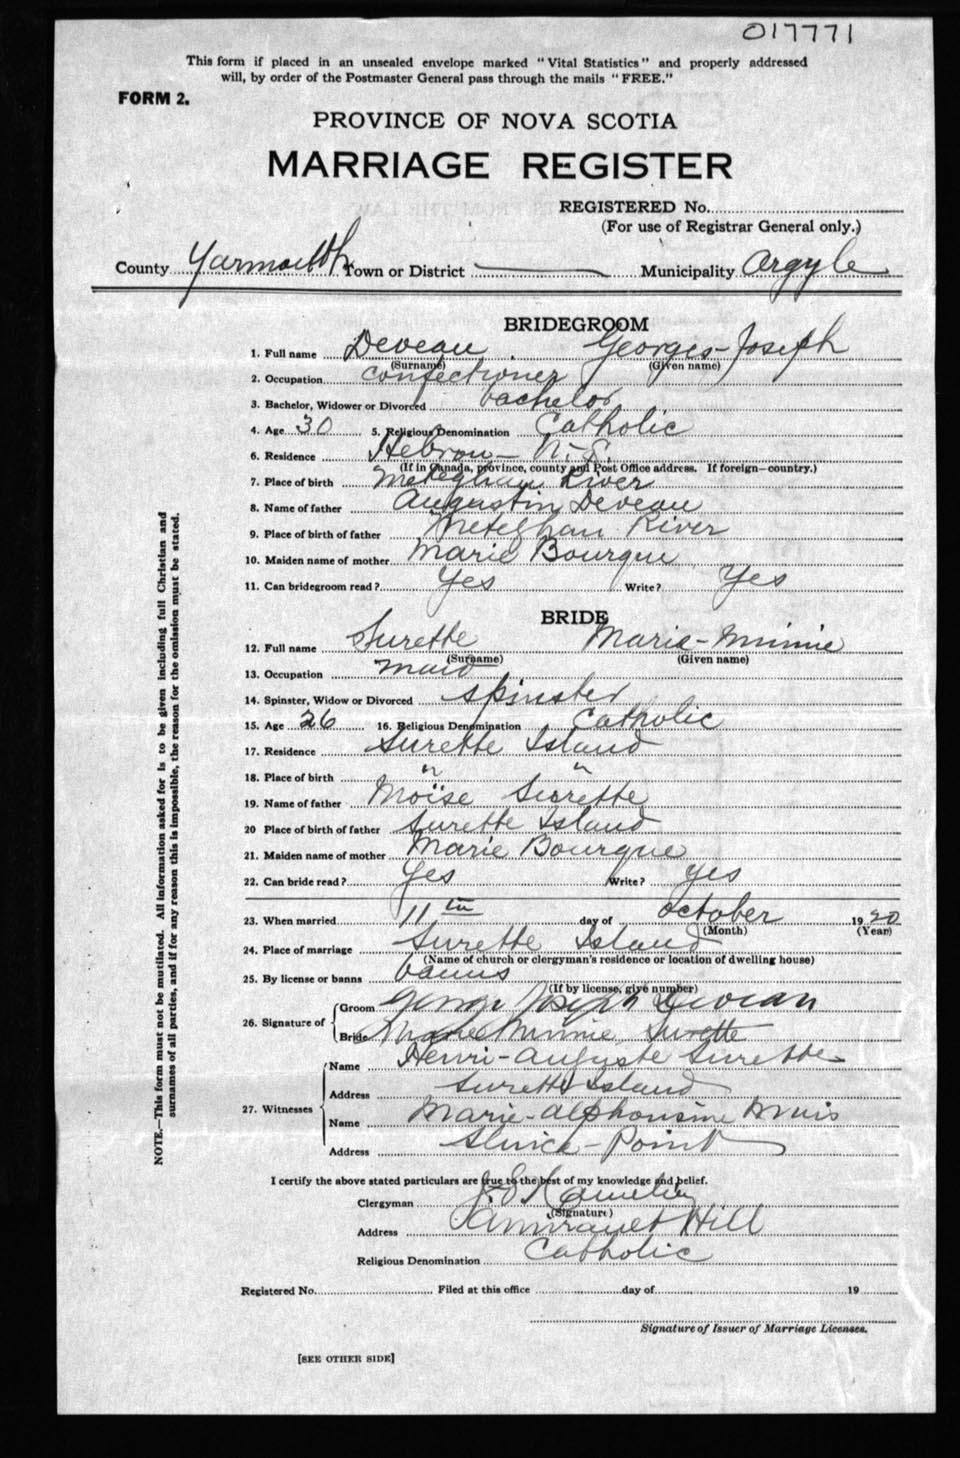 017771
This form if placed in an unsealed envelope marked "Vital Statistics" and properly addressed
will, by order of the Postmaster General pass through the mails "FREE."
FORM 2.
PROVINCE OF NOVA SCOTIA
MARRIAGE REGISTER
REGISTERED No.
(For use of Registrar General only.)
County Yarmouth Town or District Municipality Argyle
BRIDEGROOM
1. Full name Deveau Georges-Joseph
(Surname) (Given name)
2. Occupation confectioner
3. Bachelor, Widower or Divorced bachelor
4. Age 30 5. Religious Denomination Catholic
6. Residence Hebron - N.S.
(If in Canada, province, county and Post Office address. If foreign—country.)
7. Place of birth Meteghan River
8. Name of father Augustin Deveau
9. Place of birth of father Meteghan River
10. Maiden name of mother Marie Bourque
11. Can bridegroom read? Yes Write? Yes
BRIDE
12. Full name Surette Marie-Minnie
(Surname) (Given name)
13. Occupation maid
14. Spinster, Widow or Divorced spinster
15. Age 26 16. Religious Denomination Catholic
17. Residence Surette Island
18. Place of birth " "
19. Name of father Moïse Surette
20 Place of birth of father Surette Island
21. Maiden name of mother Marie Bourque
22. Can bride read? Yes Write? yes
23. When married 11th day of October 1920
(Month) (Year)
24. Place of marriage Surette Island
(Name of church or clergyman's residence or location of dwelling house)
25. By license or banns banns
(If by license, give number)
26. Signature of Groom George Joseph Deveau
Bride Marie Minnie Surette
27. Witnesses Name Henri-Auguste Surette
Address Surette Island
Name Marie-Alphonsine Muis
Address Sluice-Point
I certify the above stated particulars are true to the best of my knowledge and belief.
Clergyman
(Signature)
Address Amirault Hill
Religious Denomination Catholic
Registered No. Filed at this office day of 19
Signature of Issuer of Marriage Licenses.
[SEE OTHER SIDE]
NOTE.—This form must not be mutilated. All information asked for is to be given including full Christian and
surnames of all parties, and if for any reason this is impossible, the reason for the omission must be stated.